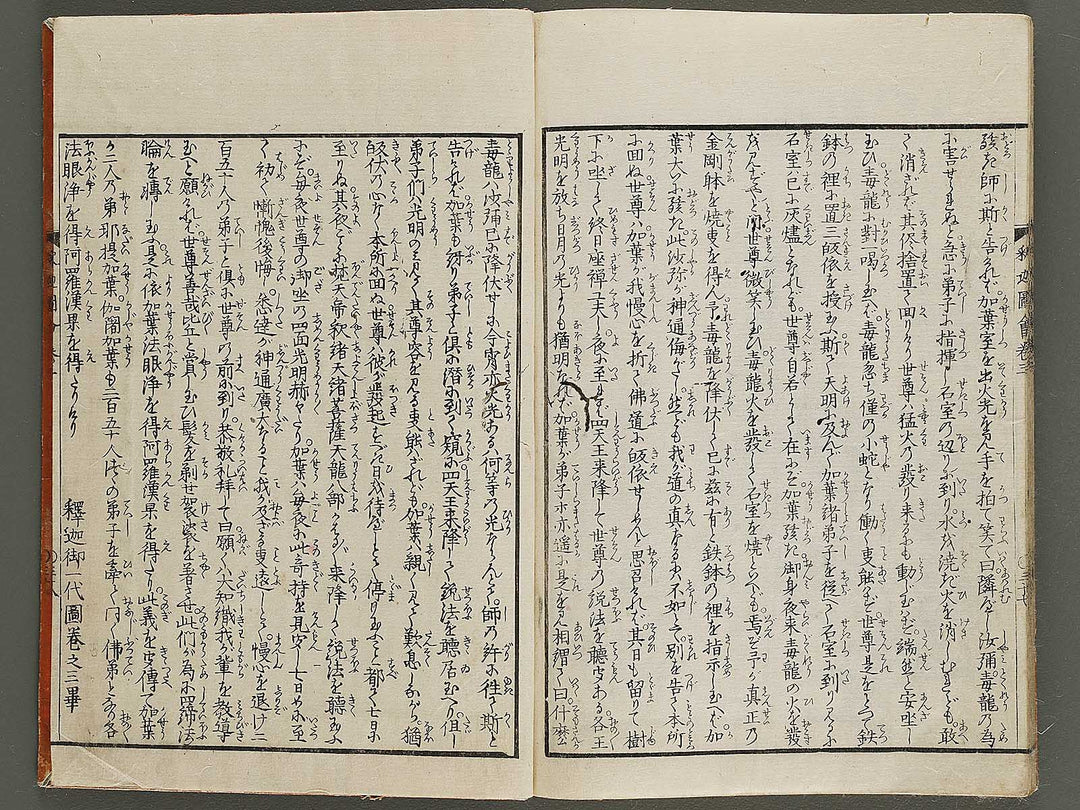 駭き師に斯と告れば加葉室を出火光を見手を拍て笑て曰隣むべし汝彌毒龍乃為
に害せられぬと急ぎ弟子に指揮し石室の辺りに到り水を澆ぎ火を消しむれども敢
て消されば其侭捨置て回りけり世尊は猛火の發り来れども動じ玉はず端然と安坐し
玉ひ毒龍に對一喝し玉へば毒龍忽ち僅の小蛇となり働く事能はず世尊是をとつて鉄
鉢の裡に置三皈依を授玉ふ斯て天明に及んで加葉緒弟子を後へし石室に到り見るに
石室は已に灰燼となれども世尊自若として在にぞ加葉駭た御身夜来毒龍の火を發
るを見ずやと問世尊微笑し玉ひ毒龍火を發して石室を焼といへども焉ぞ予が真正乃
金剛躰を焼事を得ん予毒龍を降伏して已に茲に有と鉄鉢の裡を指示し玉へば加
葉大に駭た此沙弥が神通侮がたし然どども我が道の真なるには不如とて別を告て本所
に回ぬ世尊は加葉が我慢心を折て佛道に皈依せしめんと思召されば其日も留りて樹
下に坐して終日座禪玉ひ夜に至れば四天王来降して世尊の説法を聽聞ある各王
光明を放ち日月乃光よりも猶明なれば加葉が弟子ホ亦遥に是を見相謂て曰什麼
釋迦圖會卷三
〇三十七
毒龍は汝彌已に降伏せしに今宵亦火光あるは何等乃光ならんと師の許に往て斯と
告れば加葉も訝り弟子と倶に潜に到て窺に四天王来降して説法を聽居玉へり但し
弟子們は光明のみ見て其尊容を見る事能ざれども加葉は親く見て歎息しながら猶
皈伏乃心なく本所に回ぬ世尊は彼が發起をなす日を待るしとて停り玉ふ事都て七日に
至りぬ其夜ごとに梵天帝釈緒天緒菩薩天龍八部かはるがはる来降して説法を聽玉ふ
にぞ毎夜世尊の御坐の四面光明赫々たり加葉は毎夜に此奇特を見究し七日めに至
て初て慚愧後悔し悉達が神通廣大なること我及ざる事遠しとて慢心を退け二
百五十人乃弟子と倶に世尊乃前に到り恭敬礼拜して曰願くは大知織我が輩を教導
玉へと願ければ世尊善哉比丘と賞し玉ひ髪を剃せ袈裟を著させ此們が為に四締法
輪を轉じ玉ふに依加葉法眼淨を得阿羅漢果を得たり此義を皆傳て加葉
が二人乃弟耶提加葉伽闍加葉も二百五十人づつの弟子を牽て同く佛弟となり各
法眼淨を得阿羅漢果を得たりけり
釋迦御一代圖卷之三畢
〇三十八